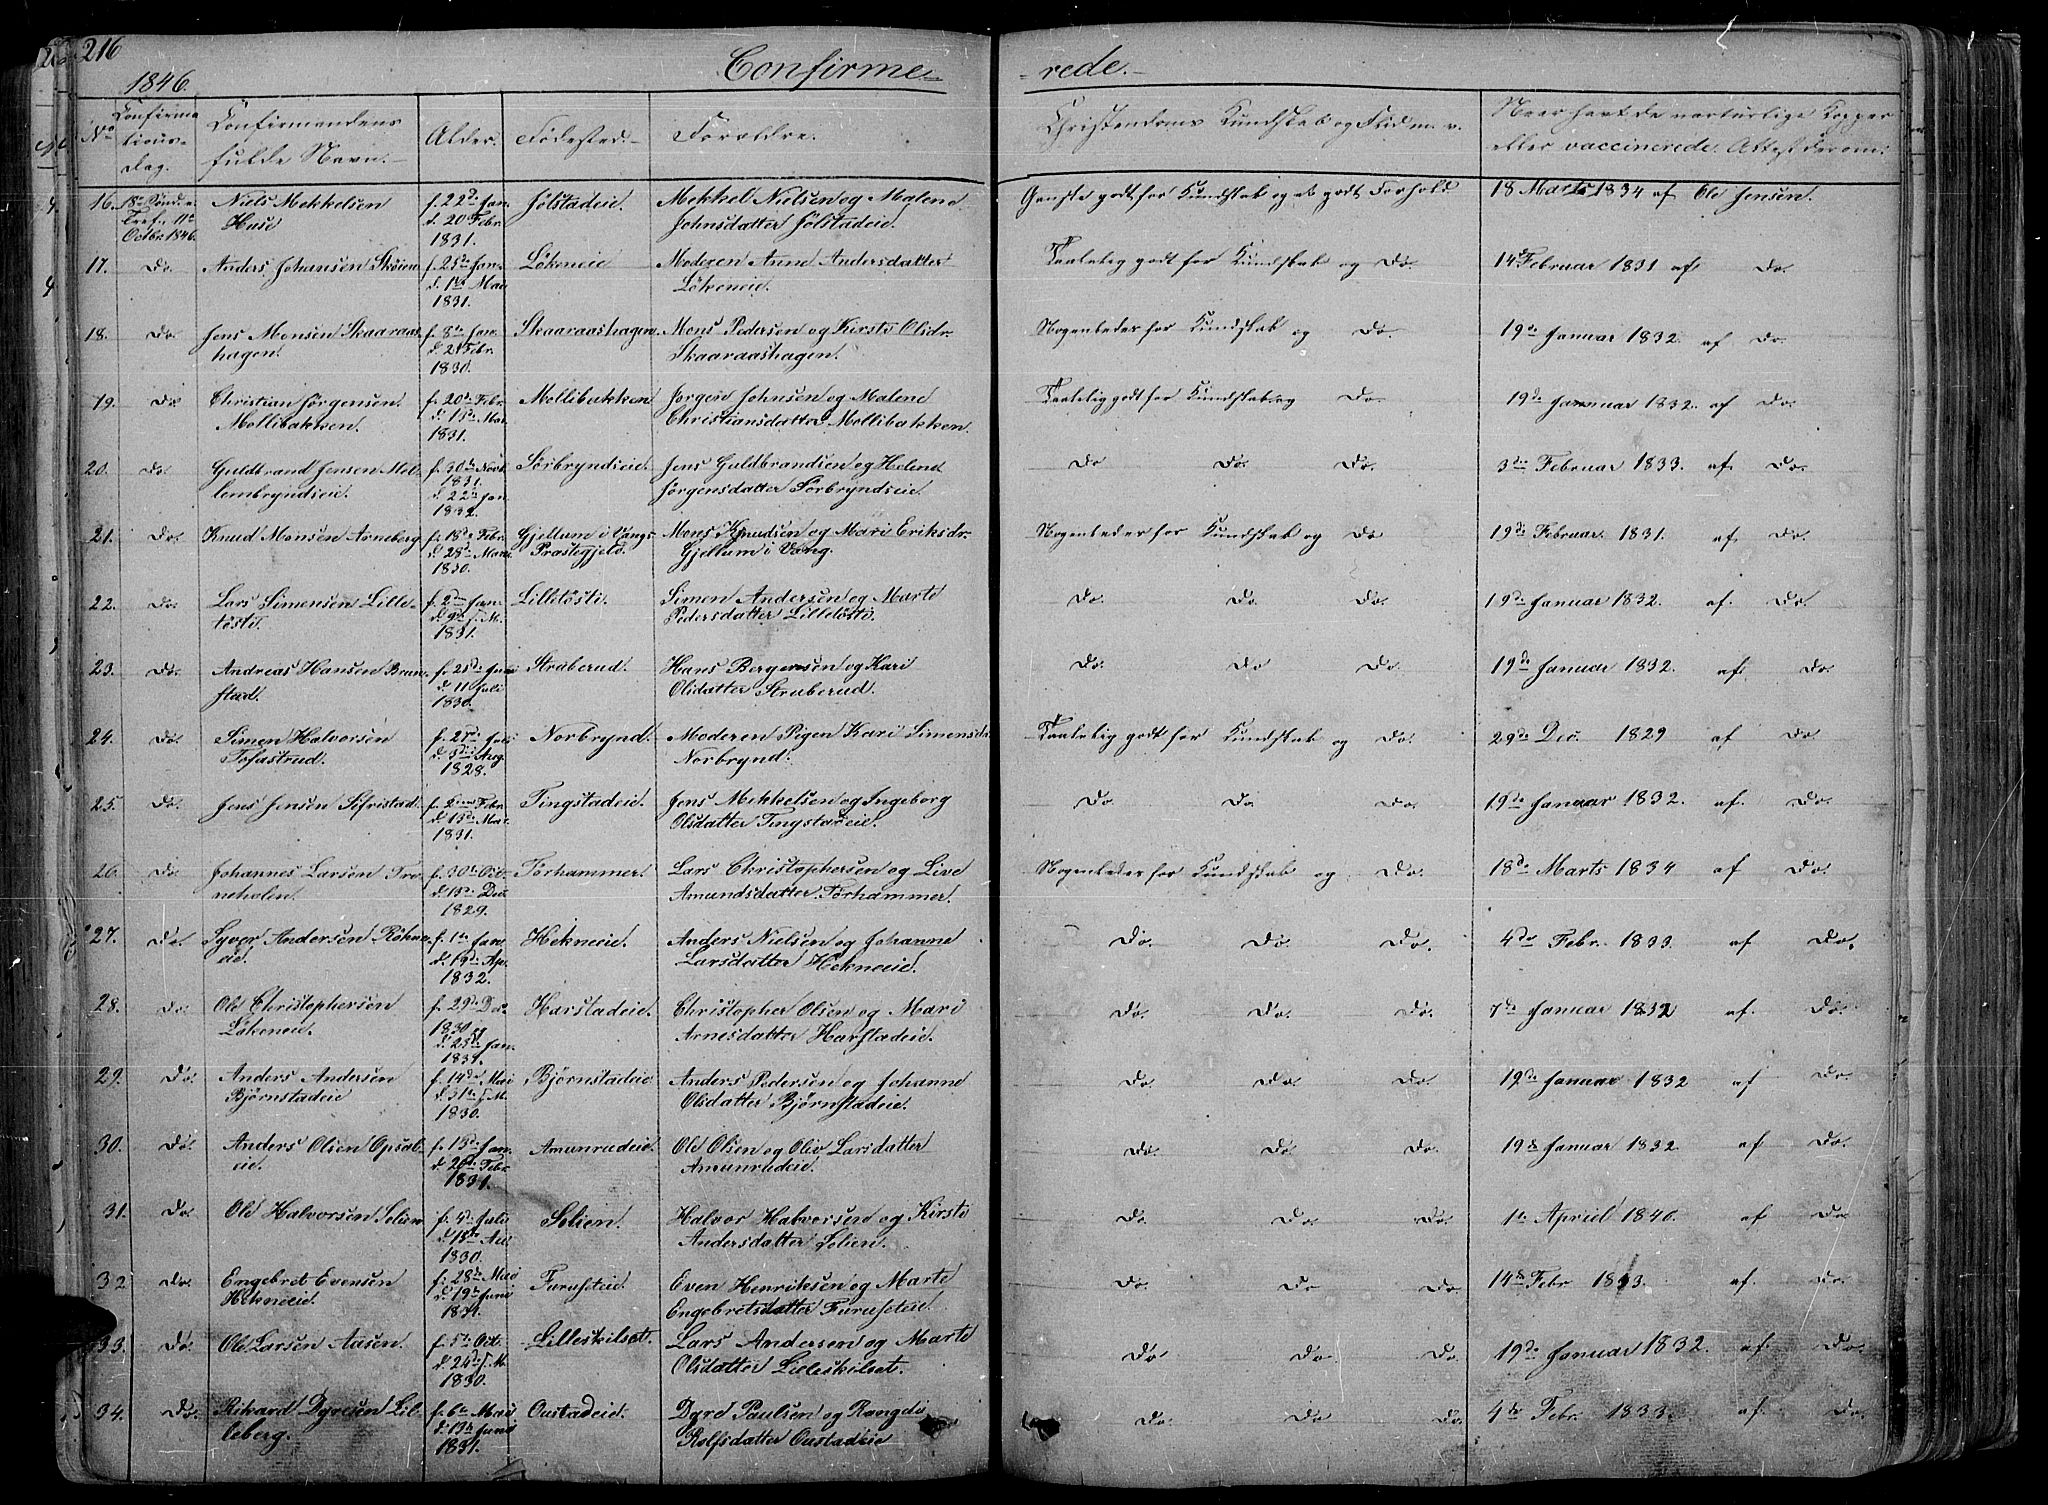 216
1846.
Confirme-
-rede.-
No
Confirma
tions-
dag.
Confirmandens
fulde Navn.
Alder.
Fødested.
Forældre.
Christendoms Kundskab og Flid m. v.
Naar havt de naturlige Kopper
eller vaccinerede. Attest derom.
16. 18de Sønd. e. Niels Mekkelsen f. 22de Jan. Jølstadeie. Mekkel Nielsen og Malene Ganske godt for Kundskab og et godt Forhold 18 Marts 1834 af Ole Jensen.
Tref. 11te Huse d. 20 Febr. Johnsdatter Jølstadeie.
Octbr. 1846. 1831.
17. Do. Anders Johansen Skøien f. 25de Jan. Løkeneie Moderen Anne Andersdatter Taalelig godt for Kundskab og Do. 14de Februar 1831 af Do.
d. 1ste Mai Løkeneie.
1831.
18. Do. Jens Monsen Skaaraas f. 8de Jan. Skaaraashagen. Mons Pedersen og Kirsti Olsdr. Nogenleder for Kundskab og Do. 19de Januar 1832. af Do.
hagen. d. 21 Febr. Skaaraashagen.
1830.
19. Do. Christian Jörgensen f. 20de Febr. Mollibakken Jørgen Johnsen og Malene Taalelig godt for Kundskab og Do. 19de Januar 1832. af Do.
Mollibakken. d. 13de Mai Christiansdatter Mollibakken.
1831.
20. Do. Guldbrand Jensen Mel- f. 30de Novb. Sörbryndseie. Jens Guldbrandsen og Helene Do Do. Do. 3die Februar 1833. af Do.
lembryndseie. 1831. Jörgensdatter Sörbryndseie.
d. 22de Jan.
1832.
21. Do. Knud Monsen Arneberg f. 18de Febr. Gjellum i Vangs Mons Knudsen og Mari Eriksdr. Nogenleder for Kundskab og Do 19de Februar. 1831. af Do.
d. 28de Mars Præstegjeld. Gjellum i Vang.
1830.
22. Do. Lars Simensen Lille- f. 2den Jan. Lilletösti. Simen Andersen og Marte Do. Do. Do. 19de Januar 1832. af. Do.
tösti. d. 9de f. M. Pedersdatter Lilletösti.
1831.
23. Do. Andreas Hansen Brun f. 21de Juni Struberud. Hans Bergersen og Kari Do. Do Do. 19de Januar 1832. af. Do.
stad. d. 11 Juli Olsdatter Struberud.
1830.
24. Do. Simen Halvorsen f. 27de Juli Norbrynd. Moderen Pigen Kari Simensd. Taalelig godt for Kundskab og Do. 29de Dec. 1829 af Do
Tofastrud. d. 3die Aug. Norbrynd.
1828.
25. Do. Jens Jensen Sifristad. f. 2den Febr. Tingstadeie. Jens Mekkelsen og Ingeborg Do. Do. Do. 19de Januar 1832. af. Do.
d. 13de Mai Olsdatter Tingstadeie.
1831.
26. Do. Johannes Larsen Tro- f. 30te Oct. Törhammer. Lars Christophersen og Live Nogenleder for Kundskab og Do. 18de Marts 1834 af Do.
neholen. d. 13de Dec. Amundsdatter Törhammer.
1829.
27. Do. Syver Andersen Röhne- f. 1te Jan. Hekneeie. Anders Nielsen og Johanne Do. Do. Do. 4de Febr. 1833. af Do.
eie. d. 19de Ap. Larsdatter Hekneeie.
1832.
28. Do. Ole Christophersen f. 29de Dec. Harstadeie. Christopher Olsen og Mari Do. Do. Do. 7de Januar 1832 af. Do.
Løkeneie. 1830 Arnesdatter Harstadeie.
d. 25de Jan.
1831.
29. Do. Anders Andersen f. 14de Mai Bjørnstadeie Anders Pedersen og Johanne Do. Do. Do. 19de Januar 1832 af Do.
Bjørnstadeie d. 31te f. M. Olsdatter Bjørnstadeie.
1830.
30. Do. Anders Olsen Opsal- f. 13de Jan. Amunrudeie. Ole Olsen og Oliv Larsdatter Do. Do. Do. 19de Januar 1832. af Do.
eie. d. 20de Febr. Amunrudeie.
1831.
31. Do. Ole Halvorsen Solien f. 4de Juli Solien. Halvor Halvorsen og Kirsti Do. Do. Do. 1te Apriel 1840. af Do.
d. 18de Juli Andersdatter Solien.
1830.
32. Do. Engebret Evensen f. 28de Mai Furuseteie. Even Henriksen og Marte Do. Do Do. 14de Febr. 1833. af. Do.
Hekneeie. d. 19de Juni Engebretsdatter Furuseteie
1831.
33. Do. Ole Larsen Aasen. f. 5te Oct. Lilleskilset. Lars Andersen og Marte Do Do. Do. 19de Januar 1832. af. Do.
d. 24de f. M. Olsdatter Lilleskilset.
1830.
34. Do. Rikard Dyresen Lil- f. 6te Mai Oustadeie. Dyre Paulsen og Rangdi Do. Do. Do. 4de Febr. 1833. af. Do.
leberg. d. 19de Juni Rolfsdatter Oustadeie
1831.